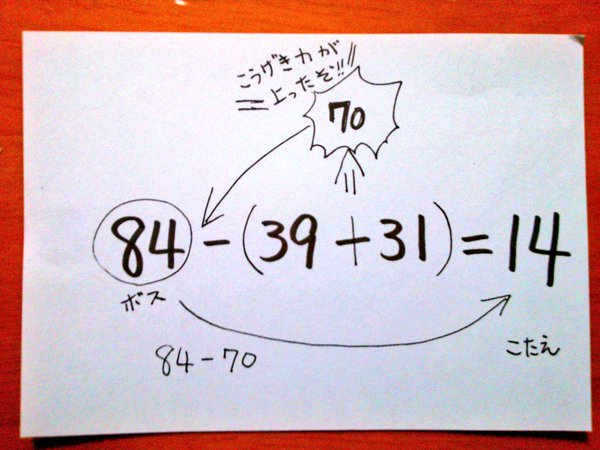 こうげき力が
上ったぞ!!
70
84-(39+31)=14
ボス
84-70
こたえ